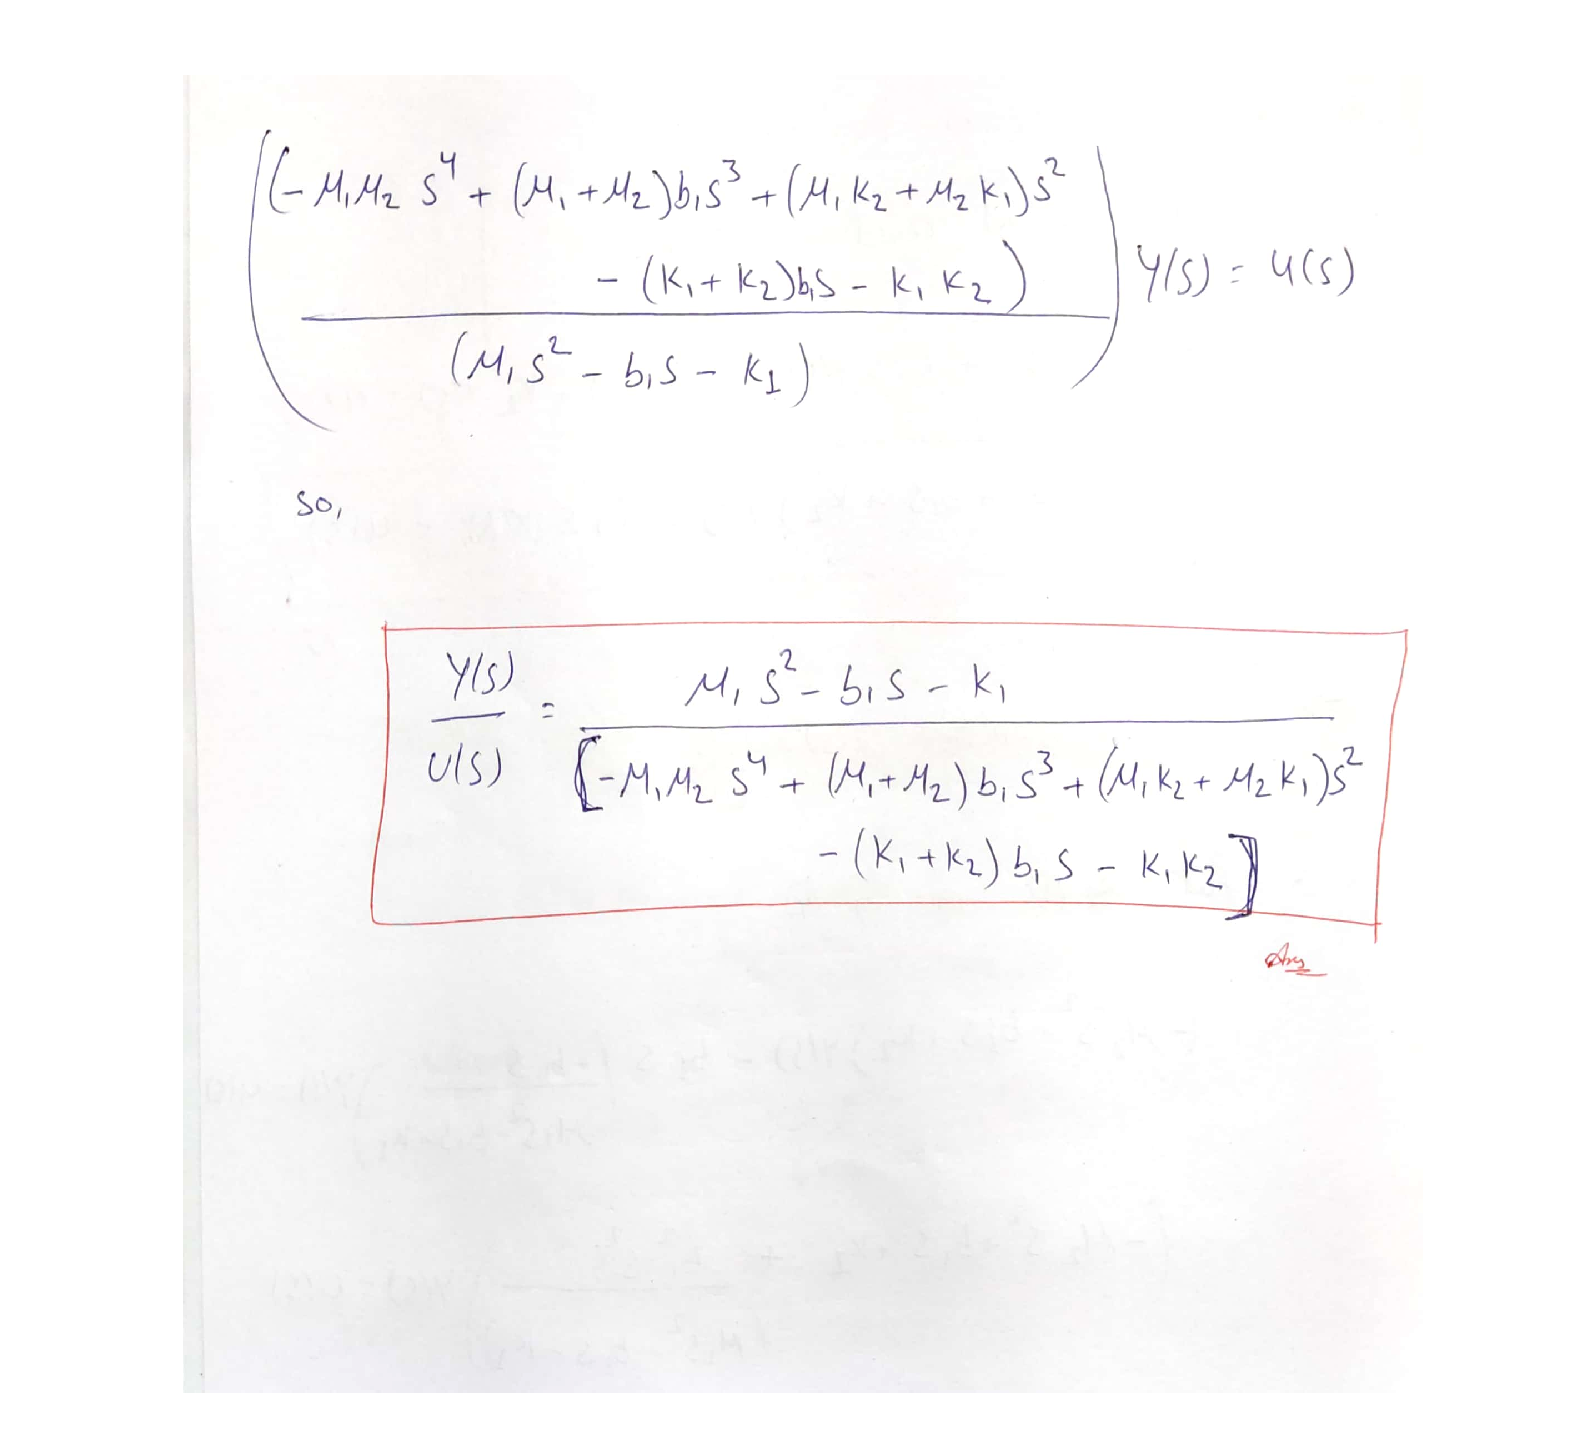 (-M₁M₂ s⁴ + (M₁+M₂)b₁s³ + (M₁K₂+M₂K₁)s²
- (K₁+K₂)b₁s - K₁K₂) Y(s) = U(s)
(M₁s² - b₁s - K₁)
so,
Y(s) = M₁s² - b₁s - K₁
U(s) [-M₁M₂ s⁴ + (M₁+M₂)b₁s³ + (M₁K₂+M₂K₁)s²
- (K₁+K₂)b₁s - K₁K₂]
Ans